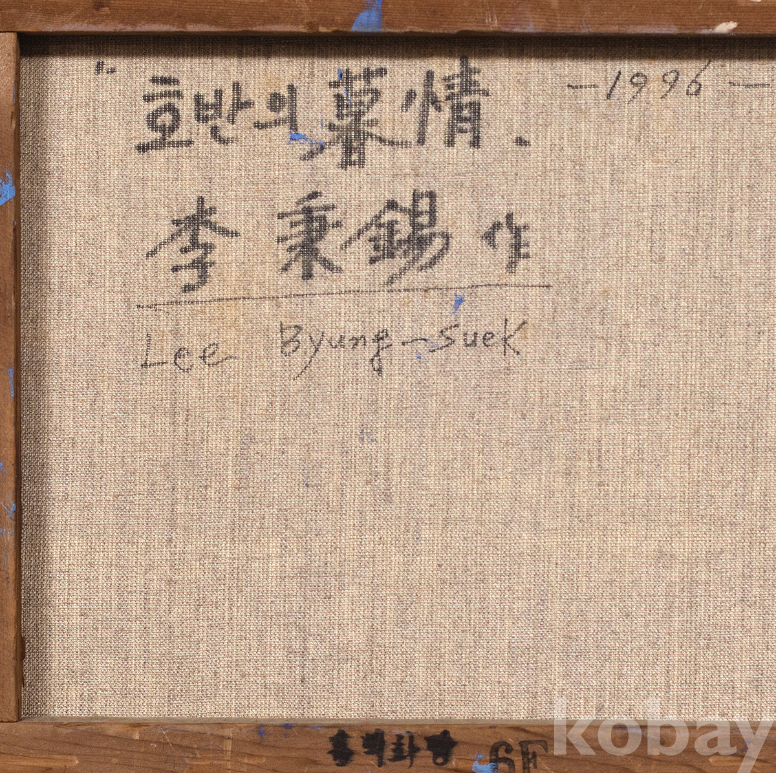 호반의 暮情. -1996-
李 秉錫 作
Lee Byung-Suek
6F
kobay